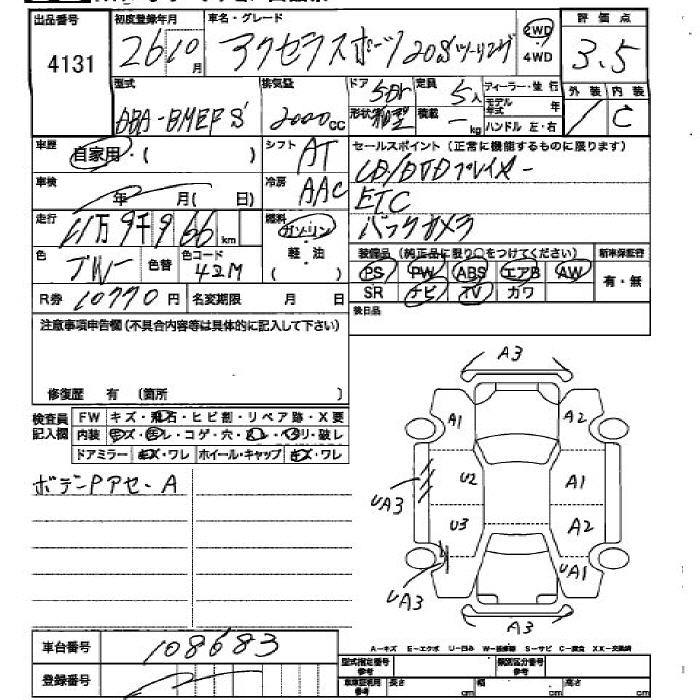 出品番号 初度登録年月 車名・グレード 評価点
4131 26 10月 アクセラスポーツ 20Sツーリング 2WD 4WD 3.5
型式 排気量 ドア 5Dr 定員 5人 ディーラー・並行 外装 内装
DBA-BMEFS 2000cc 形状 積載 ー kg モデル年式 年 C
ハンドル 左・右
車歴 自家用・( ) シフト AT セールスポイント(正常に機能するものに限ります)
CD/DVDプレイヤー
車検 年 月( 日) 冷房 AAC ETC
走行 11万9千966km 燃料 ガソリン バックカメラ
軽・油 ( ) 装備品(純正品に限り○をつけてください) 新車保証書
色 ブルー 色替 色コード 42M PS PW ABS エアB AW 有・無
R券 10770円 名変期限 月 日 SR ナビ TV カワ
注意事項申告欄(不具合内容等は具体的に記入して下さい) 後日品
修復歴 有 〔箇所 〕
検査員記入欄 FW キズ・飛石・ヒビ割・リペア跡・X要
内装 キズ・ヨレ・コゲ・穴・ ・ リ・破レ
ドアミラー キズ・ワレ ホイール・キャップ キズ・ワレ
ボデンPアセーA
A3
A1 A2
U2 A1
UA3
U3 A2
UA1
UA3
A3
A-キズ E-エクボ U-凹み W-補修跡 S-サビ C-腐食 XX-交換済
車台番号 108683
型式指定番号 類別区分番号
登録番号 長さ cm 幅 cm 高さ cm